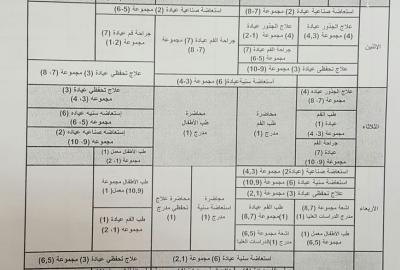 استعاضة صناعية عيادة (2) مجموعة (7-8)
استعاضة صناعية عيادة (2) مجموعة (5-6)
الاثنين
علاج الجذور عيادة
(4) مجموعة (4,3)
علاج الجذور عيادة
(4) مجموعة (1-2)
جراحة الفم عيادة (7) مجموعة
(7، 8)
جراحة فم عيادة (7)
مجموعة
(1-2)
جراحة الفم عيادة (7)
مجموعة (5-6)
علاج تحفظي عيادة (3) مجموعة (9-10)
استعاضة سنية عيادة (6) مجموعة (3-4)
علاج تحفظي (3) مجموعة (7، 8)
الثلاثاء
علاج الجذور عيادة (4)
مجموعة (7-8)
طب الفم
عيادة
(1)
مجموعة
(3-4)
جراحة الفم
عيادة
(7)
مجموعة
(9-10)
محاضرة
طب الفم
مدرج
(1)
محاضرة
طب الأطفال
مدرج (1)
علاج تحفظي عيادة (3)
مجموعة (3، 4)
استعاضة سنية عيادة (6)
مجموعة (5، 6)
استعاضة صناعية عيادة (2)
مجموعة (9-10)
طب الأطفال معمل (1)
مجموعة (1، 2)
الاربعاء
استعاضة صناعية (عيادة2) مجموعة (4,3)
استعاضة سنية عيادة (6) مجموعة (10,9)
علاج تحفظي عيادة (3) مجموعة (2,1)
اشعة مجموعة (8,7)
مدرج الدراسات العليا (1)
طب الفم عيادة
(1) مجموعة (8,7)
طب الأطفال
معمل (1)
مجموعة (6,5)
اشعة مجموعة (6,5)
مدرج (1) الدراسات العليا
محاضرة
استعاضة سنية
مدرج (1)
محاضرة علاج
تحفظي مدرج
(1)
طب الأطفال مجموعة
(10,9) معمل (1)
طب الفم عيادة (1)
مجموعة (1، 2)
علاج تحفظي عيادة (3) مجموعة (6,5)
استعاضة سنية عيادة (6) مجموعة (2,1)